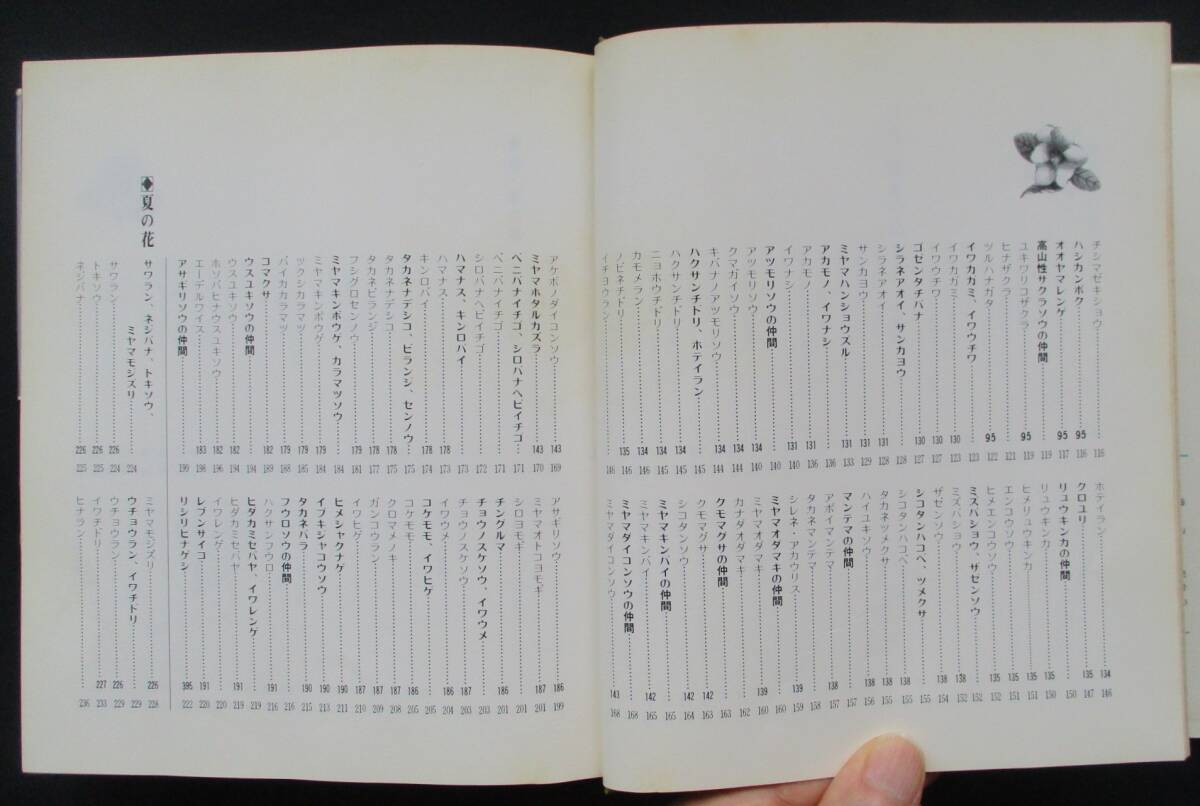 チシマゼキショウ……116
ハシカンボク……95 116
オオヤマレンゲ……95 117
高山性サクラソウの仲間……119
ユキワリコザクラ……95 119
ヒナザクラ……121
ツルハナガタ……95 122
イワカガミ、イワウチワ……123
イワカガミ……130 123
イワウチワ……130 127
ゴゼンタチバナ……130 127
シラネアオイ、サンカヨウ……128
シラネアオイ……131 128
サンカヨウ……131 129
ミヤマハンショウズル……131 133
アカモノ、イワナシ……136
アカモノ……131 136
イワナシ……131 136
アツモリソウの仲間……140
アツモリソウ……134 140
クマガイソウ……134 144
キバナノアツモリソウ……134 144
ハクサンチドリ、ホテイラン……145
ハクサンチドリ……134 145
ニョホウチドリ……145
カモメラン……134 146
ノビネチドリ……135 146
イチヨウラン……146
ホテイラン……134 146
クロユリ……135 147
リュウキンカの仲間……150
リュウキンカ……135 150
ヒメリュウキンカ……151
エンコウソウ……135 151
ヒメエンコウソウ……152
ミズバショウ、ザゼンソウ……152
ミズバショウ……138 152
ザゼンソウ……138 154
シコタンハコベ、ツメクサ……155
シコタンハコベ……138 155
タカネツメクサ……138 156
ハイユキソウ……138 156
マンテマの仲間……157
アポイマンテマ……138 157
タカネマンテマ……158
シレネ・アカウリス……139 159
ミヤマオダマキの仲間……160
ミヤマオダマキ……139 160
カナダオダマキ……162
クモマグサの仲間……163
クモマグサ……142 163
シコタンソウ……142 164
ミヤマキンバイの仲間……165
ミヤマキンバイ……142 165
ミヤマダイコンソウの仲間……168
ミヤマダイコンソウ……143 168
アケボノダイコンソウ……143 169
ミヤマホタルカズラ……143 170
ベニバナイチゴ、シロバナヘビイチゴ……171
ベニバナイチゴ……171
シロバナヘビイチゴ……172
ハマナス、キンロバイ……173
ハマナス……178 173
キンロバイ……178 174
タカネナデシコ、ビランジ、センノウ……175
タカネナデシコ……178 175
タカネビランジ……178 177
フシグロセンノウ……179 181
ミヤマキンポウゲ、カラマツソウ……184
ミヤマキンポウゲ……179 184
ツクシカラマツ……179 185
バイカカラマツ……179 188
コマクサ……182 189
ウスユキソウの仲間……194
ウスユキソウ……182 194
ホソバヒナウスユキソウ……182 196
エーデルワイス……183 198
アサギリソウの仲間……199
アサギリソウ……186 199
ミヤマオトコヨモギ……187 201
シロヨモギ……201
チングルマ……186 201
チョウノスケソウ、イワウメ……203
チョウノスケソウ……187 203
イワウメ……186 204
コケモモ、イワヒゲ……205
コケモモ……186 205
クロマメノキ……208
ガンコウラン……187 209
イワヒゲ……187 210
ヒメシャクナゲ……190 211
イブキジャコウソウ……190 213
タカネバラ……190 215
フウロソウの仲間……216
ハクサンフウロ……191 216
ヒダカミセバヤ、イワレンゲ……219
ヒダカミセバヤ……191 219
イワレンゲ……220
レブンサイコ……191 220
リシリヒナゲシ……395 222
夏の花
サワラン、ネジバナ、トキソウ、
ミヤマモジズリ……224
サワラン……226 224
トキソウ……226 225
ネジバナ……226 225
ミヤマモジズリ……226 228
ウチョウラン、イワチドリ……229
ウチョウラン……226 229
イワチドリ……227 233
ヒナラン……236